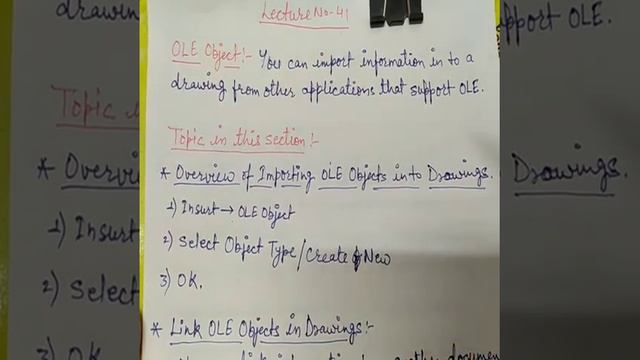 Lecture No-41
OLE Object:- You can import information in to a
drawing from other applications that support OLE.
Topic in this section:-
* Overview of Importing OLE Objects into Drawings.
1) Insurt → OLE Object
2) Select Object Type/Create New
3) OK.
* Link OLE Objects in Drawings:-